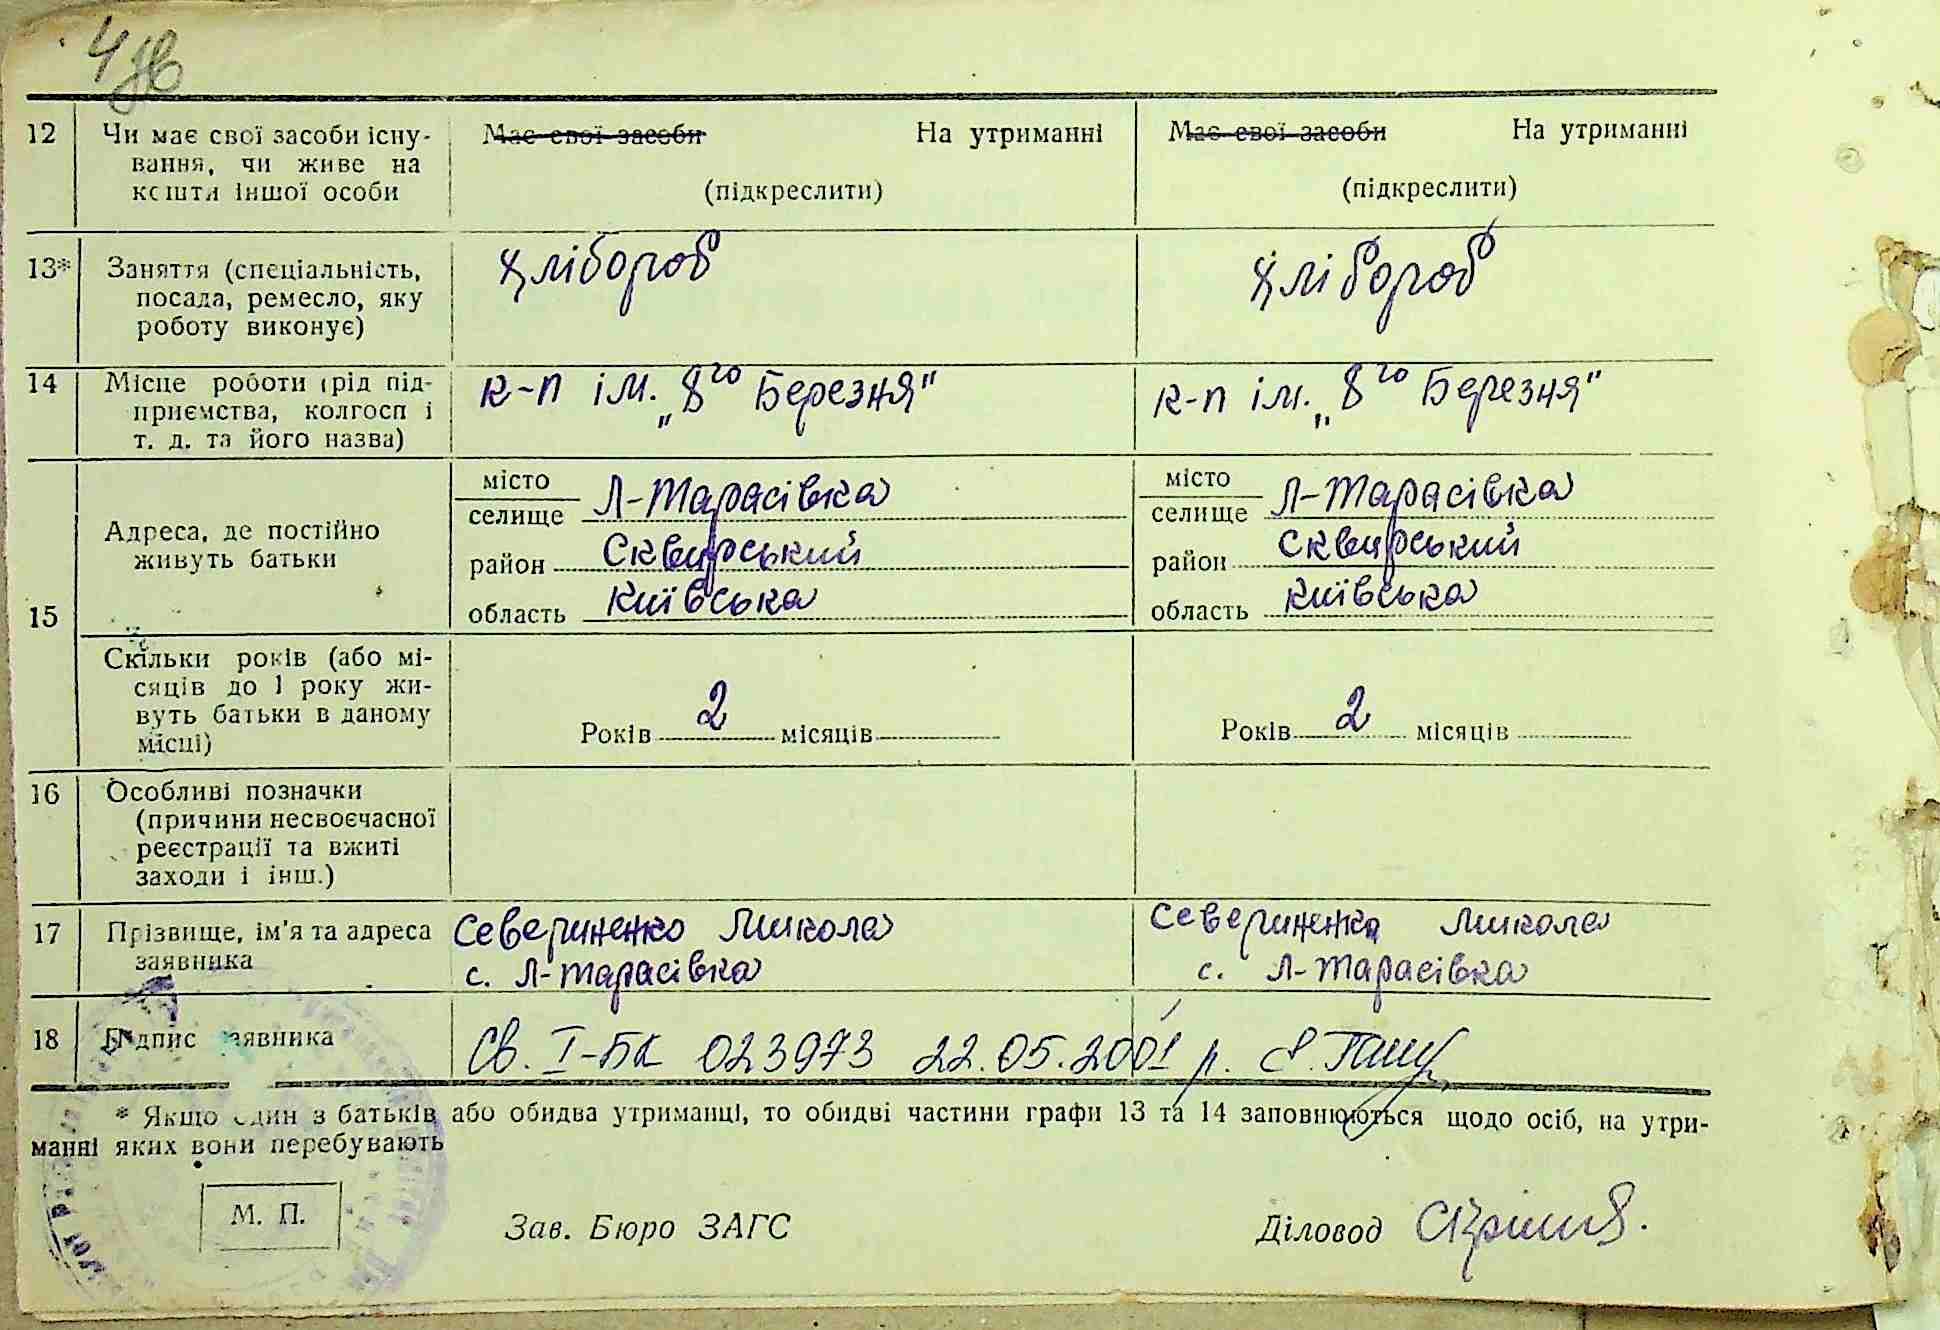 12 Чи має свої засоби існу- Має свої засоби На утриманні Має свої засоби На утриманні
вання, чи живе на
кошти іншої особи (підкреслити) (підкреслити)
13* Заняття (спеціальність, хлібороб хлібороб
посада, ремесло, яку
роботу виконує)
14 Місце роботи (рід під- к-п ім. „8го Березня" к-п ім. „8го Березня"
приємства, колгосп і
т. д. та його назва)
місто місто
селище Л-Тарасівка селище Л-Тарасівка
Адреса, де постійно район Сквирський район Сквирський
живуть батьки
15 область київська область київська
Скільки років (або мі-
сяців до 1 року жи-
вуть батьки в даному Років 2 місяців Років 2 місяців
місці)
16 Особливі позначки
(причини несвоєчасної
реєстрації та вжиті
заходи і інш.)
17 Прізвище, ім'я та адреса Севериненко Микола Севериненко Микола
заявника с. Л-Тарасівка с. Л-Тарасівка
18 Підпис заявника Св. І-БК 023973 22.05.2001 р.
* Якщо один з батьків або обидва утриманці, то обидві частини графи 13 та 14 заповнюються щодо осіб, на утри-
манні яких вони перебувають
М. П. Зав. Бюро ЗАГС Діловод